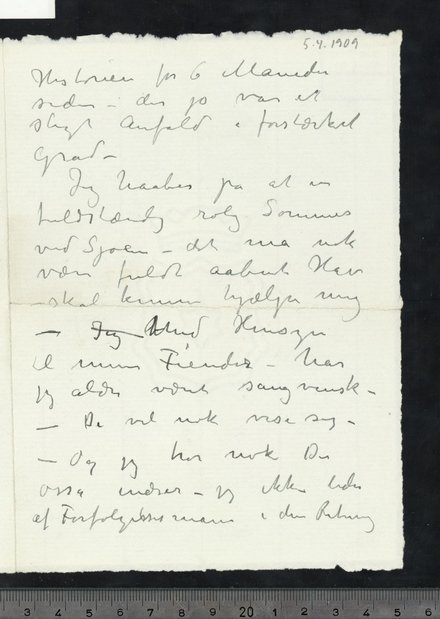 5.4.1909
Historien for 6 Maaneder
siden – der jo var et
sligt Anfald i forstærket
Grad –
Jeg haaber på at en
fuldstændig rolig Sommer
ved Sjøen – det må nok
være fuldt aabent Hav
– skal kunne hjælpe mig
– Jeg Med Hensyn
til mine Fiender – har
jeg aldri været sangvinsk –
– De vil nok vise seg –
– Og jeg tror nok De
også indser – jeg ikke lider
af Forfølgelsesmani i den Retning
3 4 5 6 7 8 9 20 1 2 3 4 5 6